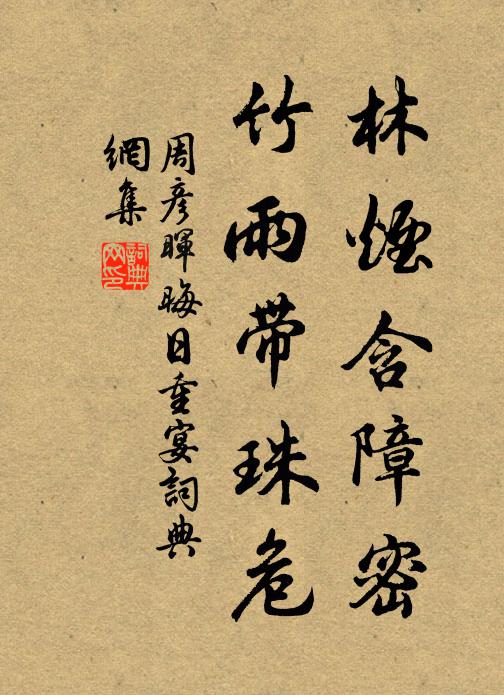 林煙含障密
竹雨带珠危
周彦暉晦日重宴詞典
網集
詞典
网印